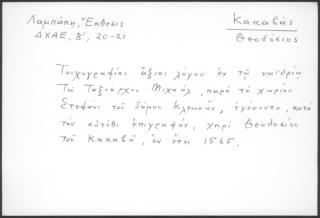 Λαμπάκη, Ἔκθεσις
ΔΧΑΕ, Β', 20-21
Κακαβᾶς
Θεοδόσιος
Τοιχογραφίαι ἄξιαι λόγου ἐν τῷ ναϊδρίῳ
Τοῦ Ταξιάρχου Μιχαήλ, παρὰ τὸ χωρίον
Στεφάνι τοῦ δήμου Κλεωνῶν, ἐγένοντο, κατὰ
τὴν αὐτόθι ἐπιγραφήν, χειρὶ Θεοδοσίου
τοῦ Κακαβᾶ, ἐν ἔτει 1565.